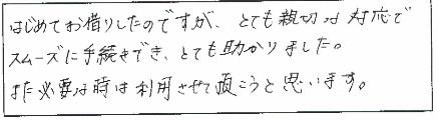 はじめてお借りしたのですが、とても親切な対応で
スムーズに手続きでき、とても助かりました。
また必要な時は利用させて頂こうと思います。